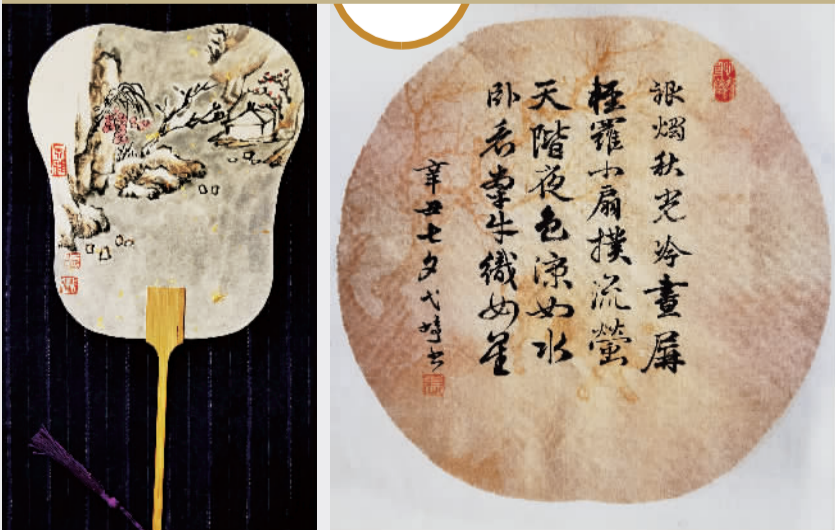 銀燭秋光冷畫屏
輕羅小扇撲流螢
天階夜色涼如水
卧看牽牛織女星
辛丑七夕弋婷书